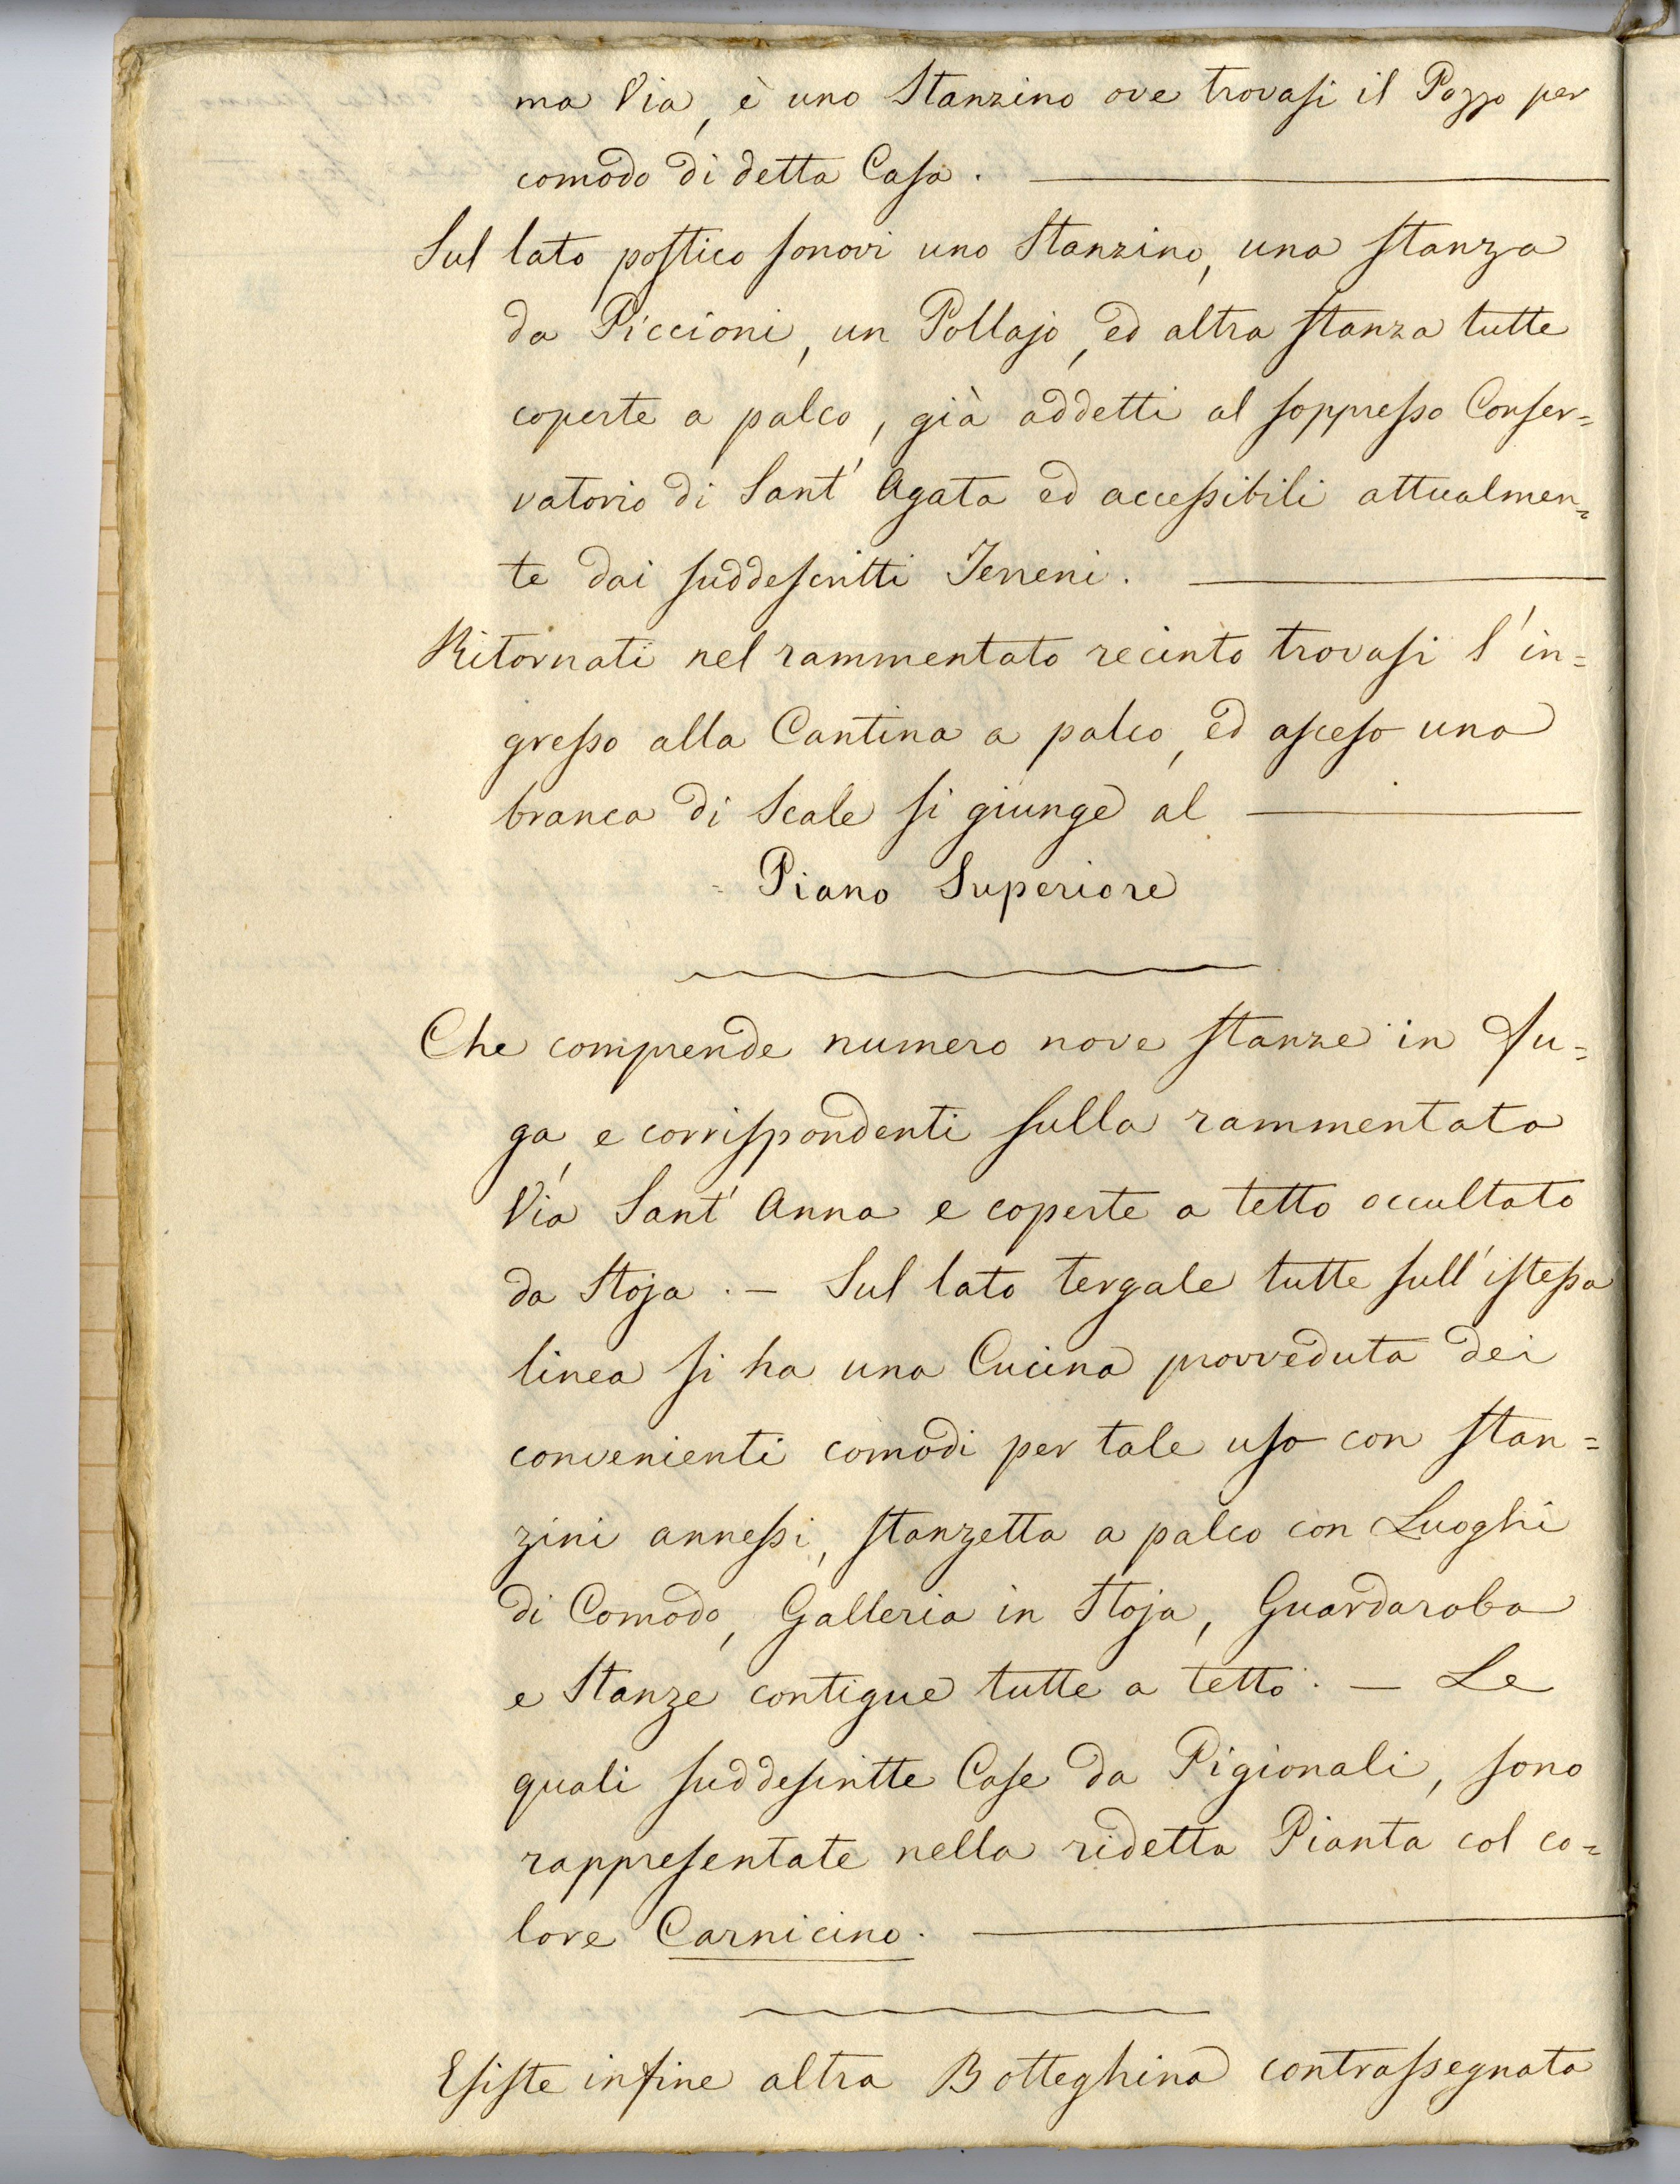 ma Via, è uno Stanzino ove trovasi il Pozzo per
comodo di detta Casa. —
Sul lato postico sonovi uno Stanzino, una stanza
da Piccioni, un Pollajo, ed altra stanza tutte
coperte a palco, già addetti al soppresso Conser=
vatorio di Sant' Agata ed accessibili attualmen=
te dai suddescritti Terreni. —
Ritornati nel rammentato recinto trovasi l'in=
gresso alla Cantina a palco, ed asceso una
branca di Scale si giunge al —
Piano Superiore
Che comprende numero nove stanze in fu=
ga, e corrispondenti sulla rammentata
Via Sant' Anna e coperte a tetto occultato
da Stoja. — Sul lato tergale tutte sull'istessa
linea si ha una Cucina provveduta dei
convenienti comodi per tale uso con stan=
zini annessi, stanzetta a palco con Luoghi
di Comodo, Galleria in Stoja, Guardaroba
e Stanze contigue tutte a tetto. — Le
quali suddescritte Case da Pigionali, sono
rappresentate nella ridetta Pianta col co=
lore Carnicino. —
Esiste infine altra Botteghina contrassegnata